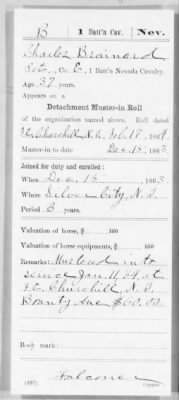 B | 1 Batt'n Cav. | Nev.
Charles Brainard
Pvt., Co. E, 1 Batt'n Nevada Cavalry.
Age 37 years.
Appears on a
Detachment Muster-in Roll
of the organization named above. Roll dated
Ft. Churchill N.T., Feb. 17, 1864.
Muster-in to date Dec. 15, 1863
Joined for duty and enrolled:
When Dec. 15, 1863
Where Silver City, N.T.
Period 3 years.
Valuation of horse, $ 100
Valuation of horse equipments, $ 100
Remarks: Mustered into
service Jan. 11, 64, at
Ft. Churchill, N.T.
Bounty due $60.00.
Book mark:
Falconer
(337) Copyist.